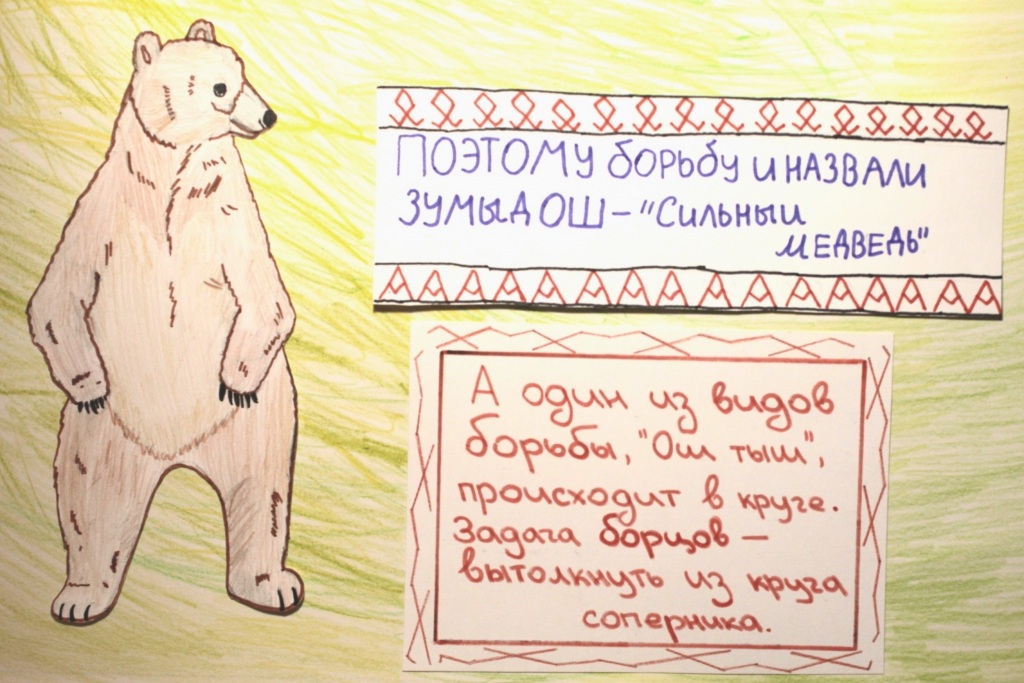 ПОЭТОМУ борьбу И НАЗВАЛИ
ЗУМЫД ОШ – "Сильный
МЕДВЕДЬ"
А один из видов
борьбы, "Ош тыш",
происходит в круге.
Задача борцов –
вытолкнуть из круга
соперника.